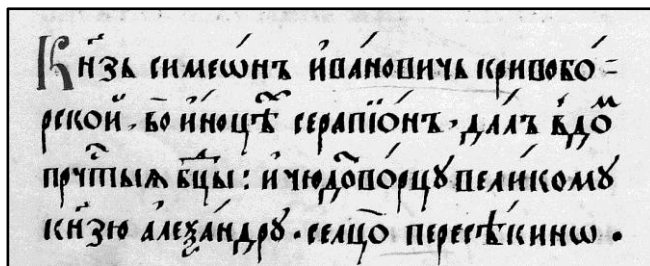 Кн҃зь симеѡ́нъ и҆ва́новичь кривобо́-
рской, во и҆ноцѣⷯ серапїо́нъ, да́лъ в̾доⷨ
прⷱ҇тыѧ бц҃ы: и҆ чюдотво́рцꙋ вели́комꙋ
кн҃зю а҆леѯа́ндрꙋ. селцо̀ пересѣ́кинѡ.